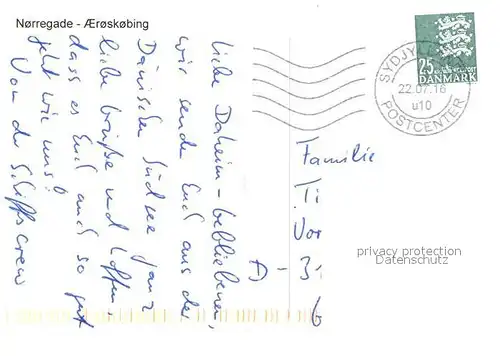 Nørregade - Ærøskøbing
Liebe Daheim-gebliebenen,
wir senden Euch aus der
Dänischen Südsee ganz
liebe Grüße und hoffen,
dass es Euch auch so gut
geht wie uns!
Von der Schiffscrew
25
DANMARK
SYDJYLLANDS
22.07.16
u10
POSTCENTER
Familie
Ti
Vor
A - 3
6
privacy protection
Datenschutz